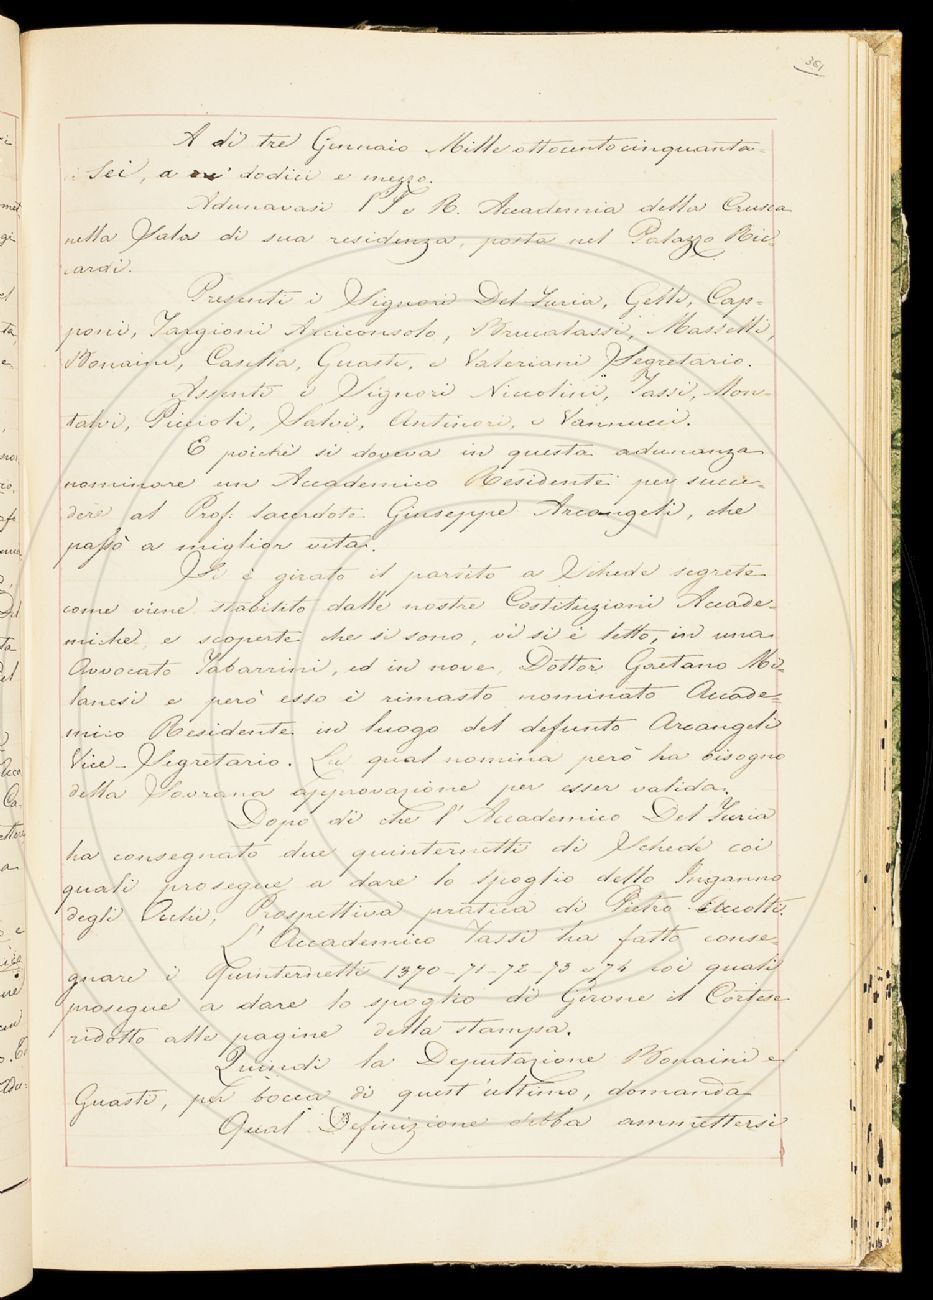 361
A dì tre Gennaio Mille ottocento cinquanta-
Sei, a ore dodici e mezzo.
Adunavasi l'I e R. Accademia della Crusca
nella Sala di sua residenza, posta nel Palazzo Ric-
cardi.
Presenti i Signori Del Furia, Gelli, Cap-
poni, Targioni Arciconsolo, Brucalassi, Masselli,
Bonaini, Casella, Guasti, e Valeriani Segretario.
Assenti i Signori Niccolini, Tassi, Mon-
talvi, Piccioli, Salvi, Antinori, e Vannucci.
E poichè si doveva in questa adunanza
nominare un Accademico Residente per succe-
dere al Prof. Sacerdote Giuseppe Arcangeli, che
passò a miglior vita.
Si è girato il partito a Schede segrete
come viene stabilito dalle nostre Costituzioni Accade-
miche, e scoperte che si sono, vi si è letto, in una
Avvocato Tabarrini, ed in nove, Dottor Gaetano Mi-
lanesi e però esso è rimasto nominato Accade-
mico Residente in luogo del defunto Arcangeli
Vice-Segretario. La qual nomina però ha bisogno
della Sovrana approvazione per esser valida.
Dopo di che l'Accademico Del Furia
ha consegnato due quinternetti di Schede coi
quali prosegue a dare lo spoglio dello Inganno
degli Occhi, Prospettiva pratica di Pietro Accolti.
L'Accademico Tassi ha fatto conse-
gnare i Quinternetti 1370-71-72-73 e 74 coi quali
prosegue a dare lo spoglio di Girone il Cortese
ridotto alle pagine della stampa.
Quindi la Deputazione Bonaini e
Guasti, per bocca di quest'ultimo, domanda
Qual Definizione debba ammettersi